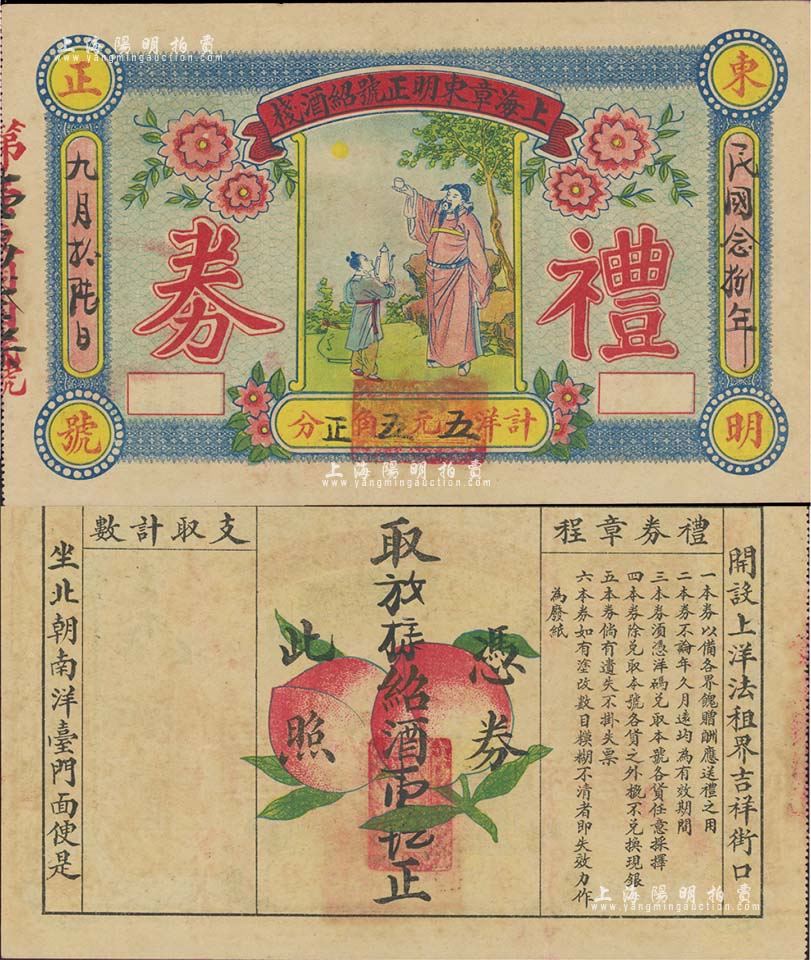 上海陽明拍賣
www.yangmingauction.com
上海章東明正號紹酒棧
東
正
明
號
民國念捌年
九月拾陸日
禮券
計洋五元五角正分
第
號
上海陽明拍賣
www.yangmingauction.com
開設上洋法租界吉祥街口
禮券章程
一本券以備各界餽贈酬應送禮之用
二本券不論年久月遠均為有效期間
三本券須憑洋碼兑取本號各貨任意採擇
四本券除兑取本號各貨之外概不兑換現銀
五本券倘有遺失不掛失票
六本券如有塗改數目模糊不清者即失效力作
為廢紙
憑券
取放樣紹酒壹坛正
此照
支取計數
坐北朝南洋臺門面便是
上海陽明拍賣
www.yangmingauction.com